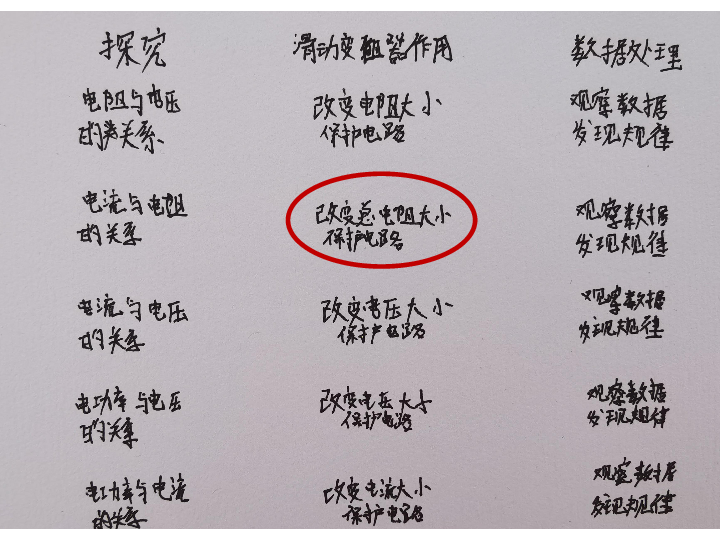 探究 滑动变阻器作用 数据处理
电阻与电压 改变电阻大小 观察数据
的关系 保护电路 发现规律
电流与电阻 改变总电阻大小 观察数据
的关系 保护电路 发现规律
电流与电压 改变电压大小 观察数据
的关系 保护电路 发现规律
电功率与电压 改变电压大小 观察数据
的关系 保护电路 发现规律
电功率与电流 改变电流大小 观察数据
的关系 保护电路 发现规律